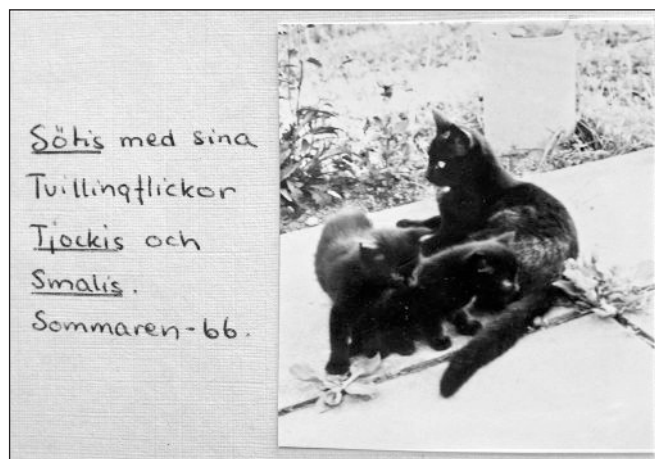 Sötis med sina
Tvillingflickor
Tjockis och
Smalis.
Sommaren-66.